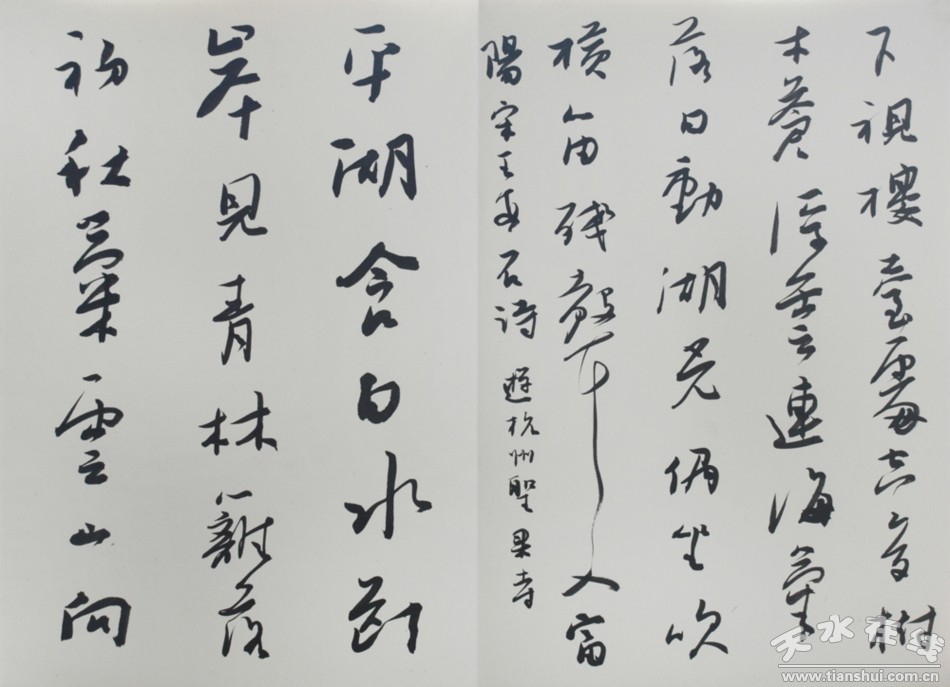 下視樓臺處空多樹
木蒼浮雲連海氣
落日動湖光偶坐吹
橫笛殘聲入富
陽宋王安石詩 遊杭州聖果寺
平湖含白水斷
岸見青林籬落
初秋氣雲山向
天水在线
www.tianshui.com.cn